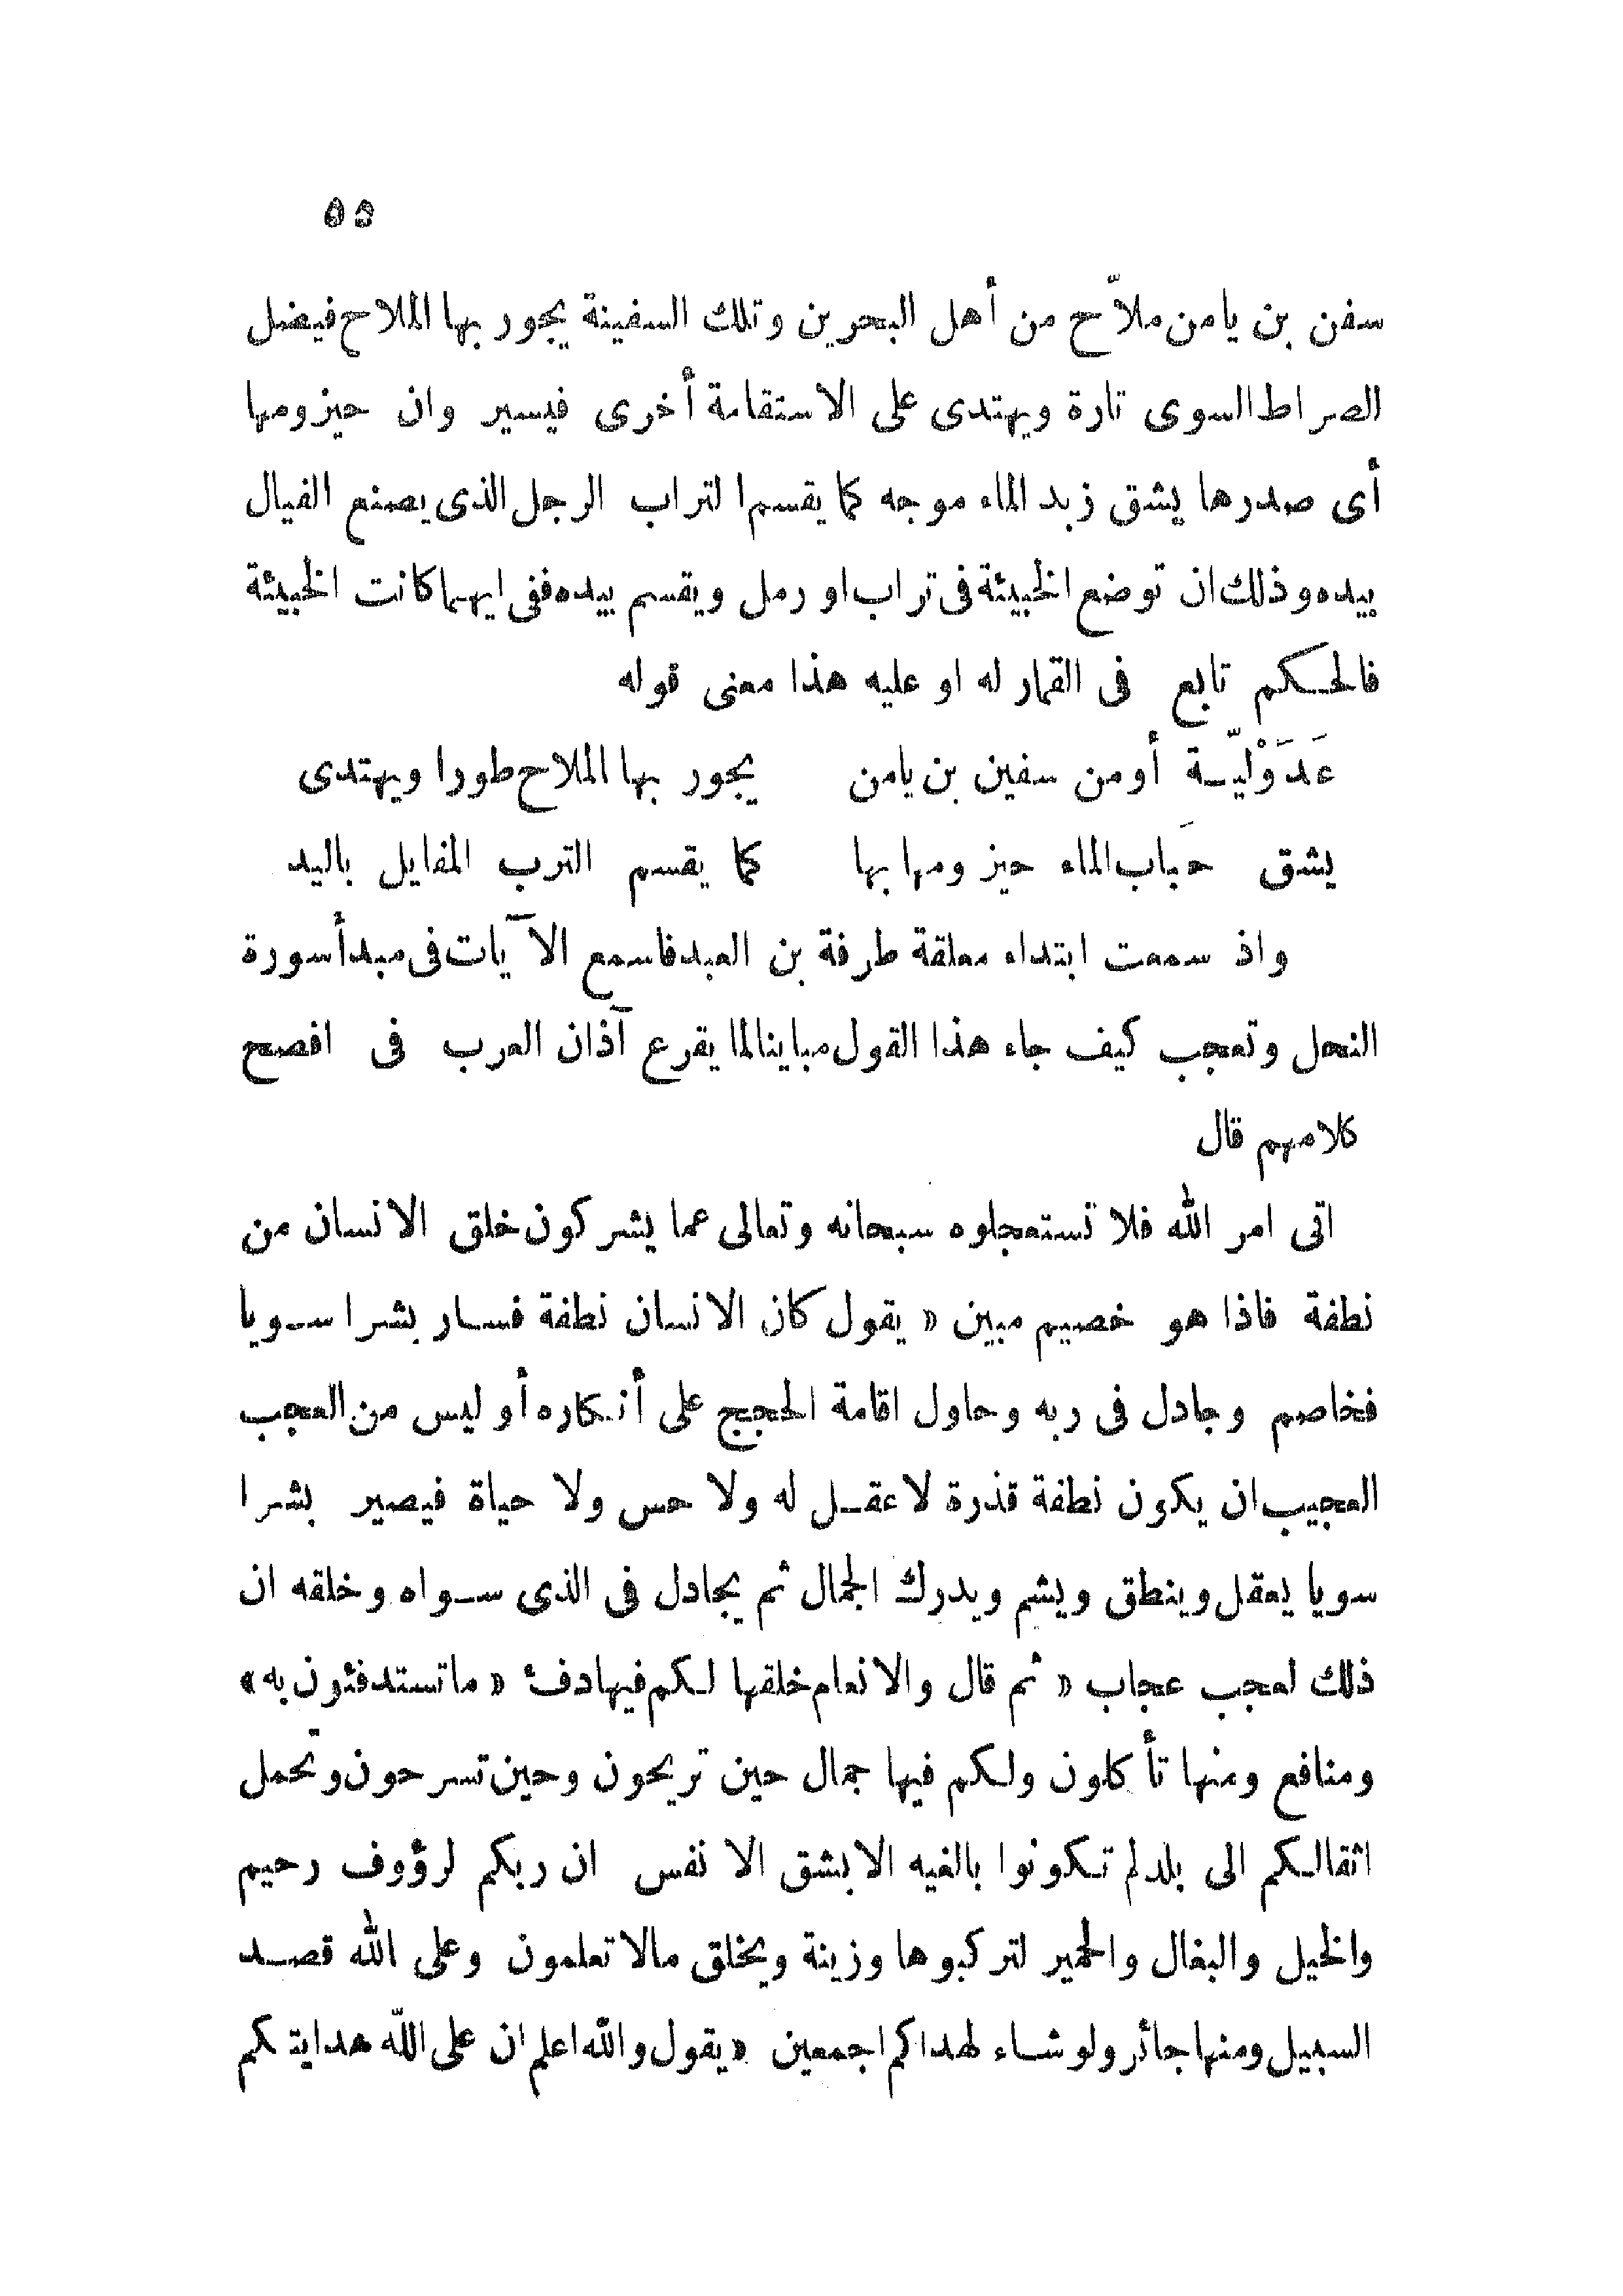 ٥٥
سفن بن يامن ملاّح من أهل البحرين وتلك السفينة يجور بها الملاح فيضل
الصراط السوى تارة ويهتدى على الاستقامة أخرى فيسير وان حيزومها
أى صدرها يشق زبد الماء موجه كما يقسم التراب الرجل الذى يصنع الفيال
بيده وذلك ان توضع الخبيئة فى تراب او رمل ويقسم بيده ففى ايهما كانت الخبيئة
فالحكم تابع فى القمار له او عليه هذا معنى قوله
عَدَوْليّة أو من سفين بن يامن يجور بها الملاح طورا ويهتدى
يشق حَباب الماء حيزومها بها كما يقسم الترب المفايل باليد
واذ سمعت ابتداء معلقة طرفة بن العبد فاسمع الآيات فى مبدأ سورة
النحل وتعجب كيف جاء هذا القول مباينا لما يقرع آذان العرب فى افصح
كلامهم قال
اتى امر الله فلا تستعجلوه سبحانه وتعالى عما يشركون خلق الانسان من
نطفة فاذا هو خصيم مبين « يقول كان الانسان نطفة فسار بشرا سويا
فخاصم وجادل فى ربه وحاول اقامة الحجج على أنكاره أو ليس من العجب
العجيب ان يكون نطفة قذرة لا عقل له ولا حس ولا حياة فيصير بشرا
سويا يعقل وينطق ويشم ويدرك الجمال ثم يجادل فى الذى سواه وخلقه ان
ذلك لعجب عجاب « ثم قال والانعام خلقها لكم فيها دفئ « ما تستدفئون به »
ومنافع ومنها تأكلون ولكم فيها جمال حين تريحون وحين تسرحون وتحمل
اثقالكم الى بلد لم تكونوا بالغيه الا بشق الانفس ان ربكم لرؤوف رحيم
والخيل والبغال والحمير لتركبوها وزينة ويخلق مالا تعلمون وعلى الله قصد
السبيل ومنها جائر ولو شاء لهداكم اجمعين « يقول والله اعلم ان على اللّه هدايتكم